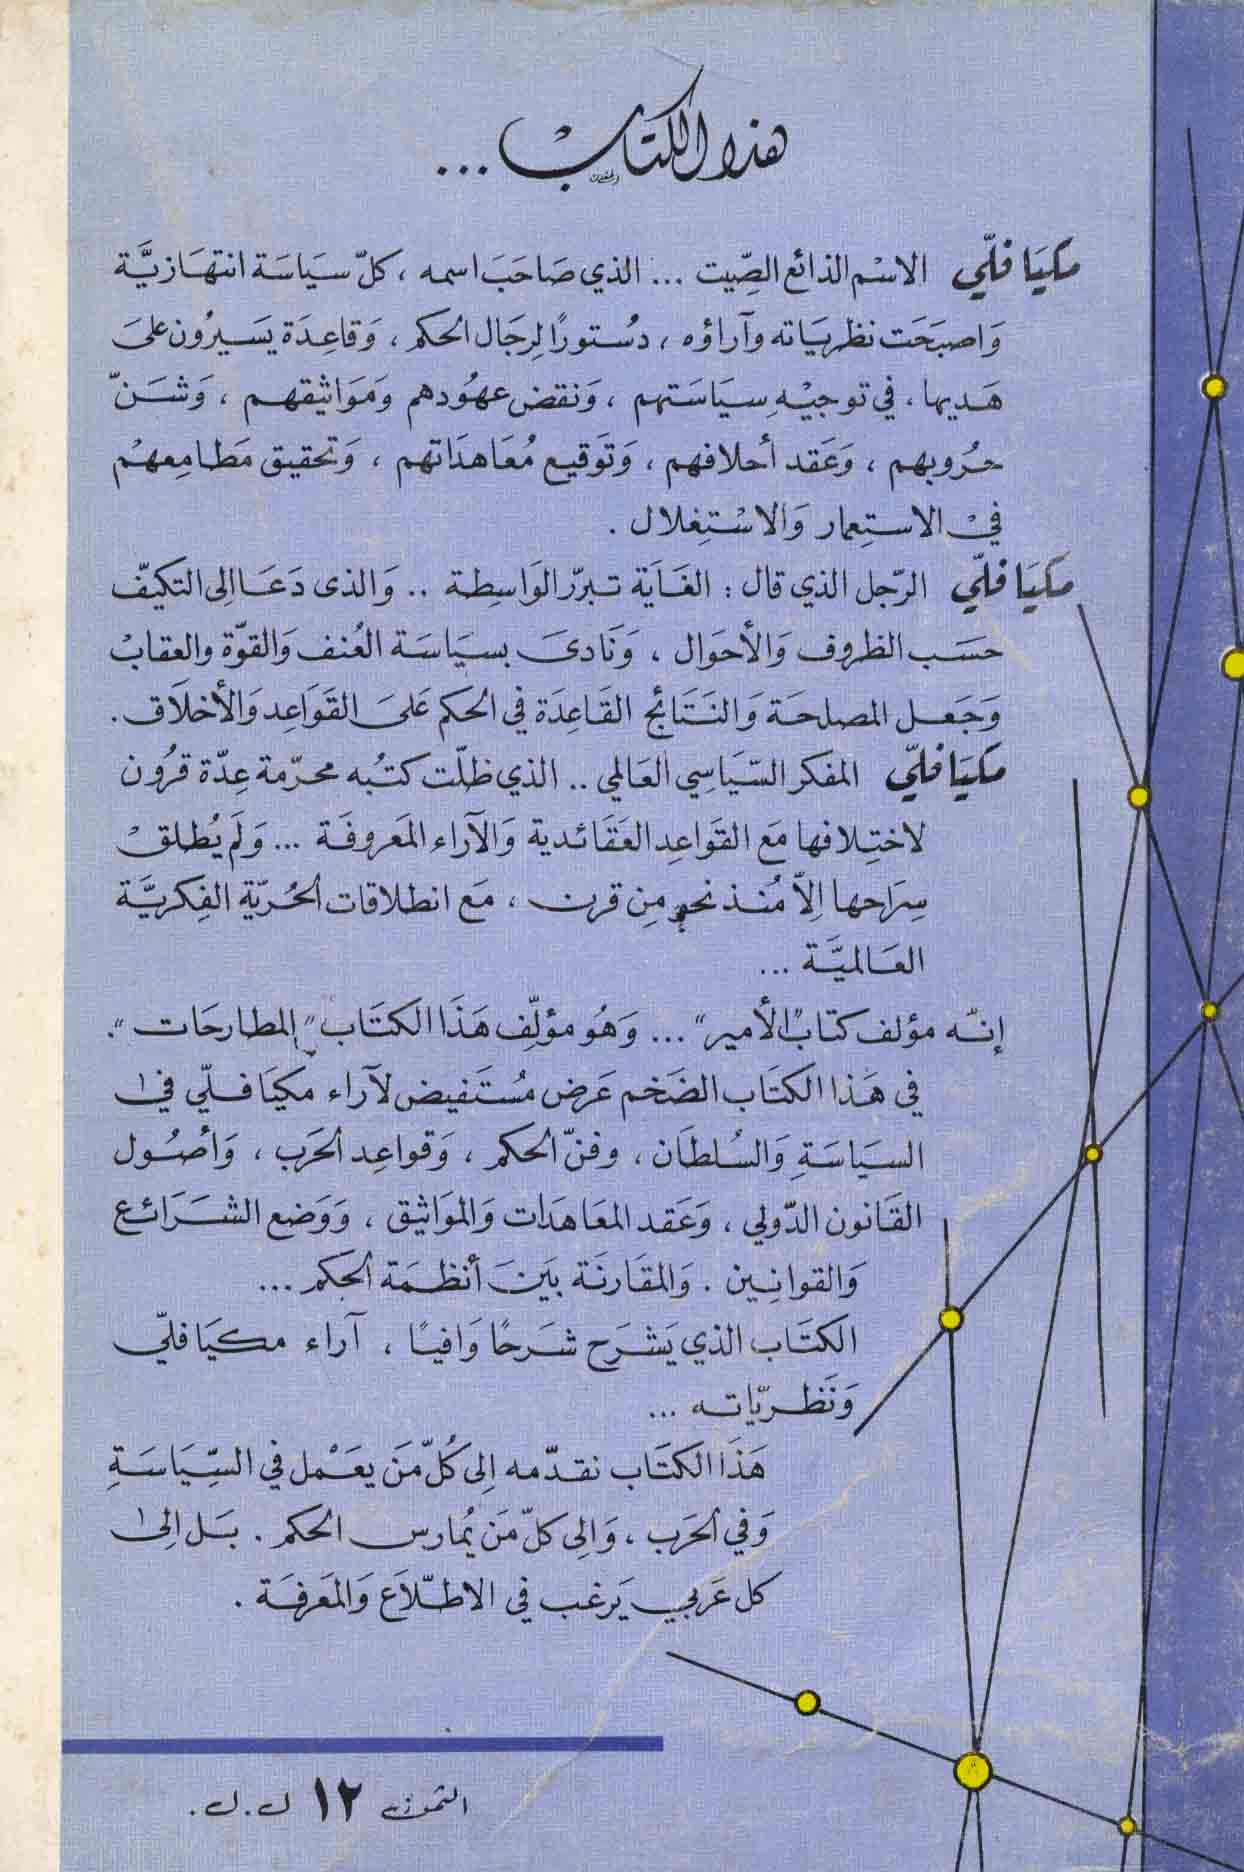 هذا الكتاب ...
مكيَافلّي الاسْم الذائع الصِّيت ... الذي صَاحَبَ اسمه ، كلّ سيَاسَة انتهَازيَّة
وَاصبَحَت نظريَاته وآراؤه ، دُستورًا لِرجَال الحكم ، وَقاعِدَة يَسيرُون علىَ
هَديها ، في توجيْهِ سيَاسَتهم ، وَنقض عهُودهم وَمَوَاثيقهم ، وَشَنّ
حرُوبهم ، وَعَقد أحلافهم ، وَتَوقيع مُعَاهدَاتهم ، وَتحقيق مَطامِعهمْ
فيْ الاستِعمار وَالاسْتِغلال .
مكيَافلّي الرّجل الذي قال : الغَايَة تبرّر الوَاسِطة .. وَالذى دَعَا الى التكيّف
حَسَب الظروف وَالأحوَال ، وَنَادىَ بسيَاسَة العُنف وَالقوّة والعقابْ
وَجَعل المصلحَة وَالنَتَائج القَاعِدَة في الحكم عَلىَ القوَاعِد وَالأخلَاق .
مكيَافلّي المفكر السّيَاسِي العَالمي .. الذي ظلّت كتُبه محرّمة عِدّة قرُون
لاختِلافها مَع القوَاعِد العَقَائدية وَالآراء المَعروفَة ... وَلَم يُطلقْ
سِرَاحها اِلاّ مُنذ نحو مِن قرن ، مَع انطلاقات الحُريّة الفِكريَّة
العَالميَّة ...
إنّه مؤلف كتاب "الأمير" ... وَهُو مؤلِّف هَذَا الكتَاب "المطارحَات" .
في هَذا الكتَاب الضَخم عَرض مُستَفيض لآراء مكيَافلّي في
السيَاسَةِ وَالسُلطَان ، وفنّ الحكم ، وَقواعِد الحَرب ، وَأصُول
القَانون الدّولي ، وَعَقد المعَاهَدَات وَالموَاثيق ، وَوَضع الشرَائع
وَالقوانِين . وَالمقَارنَة بَينَ أنظمَة الحكم ...
الكتَاب الذي يَشرَح شرَحًا وَافيًا ، آراء مكيَافلّي
وَنَظريّاته ...
هَذَا الكتَاب نقدّمه اِلى كُلّ مَن يعَمْل في السِّيَاسَةِ
وَفي الحَرب ، وَالى كلّ مَن يُمارس الحكم . بَل اِلىٰ
كل عَربي يَرغب في الاطلّاَع وَالمَعرفَة .
الثمن ١٢ ل.ل.